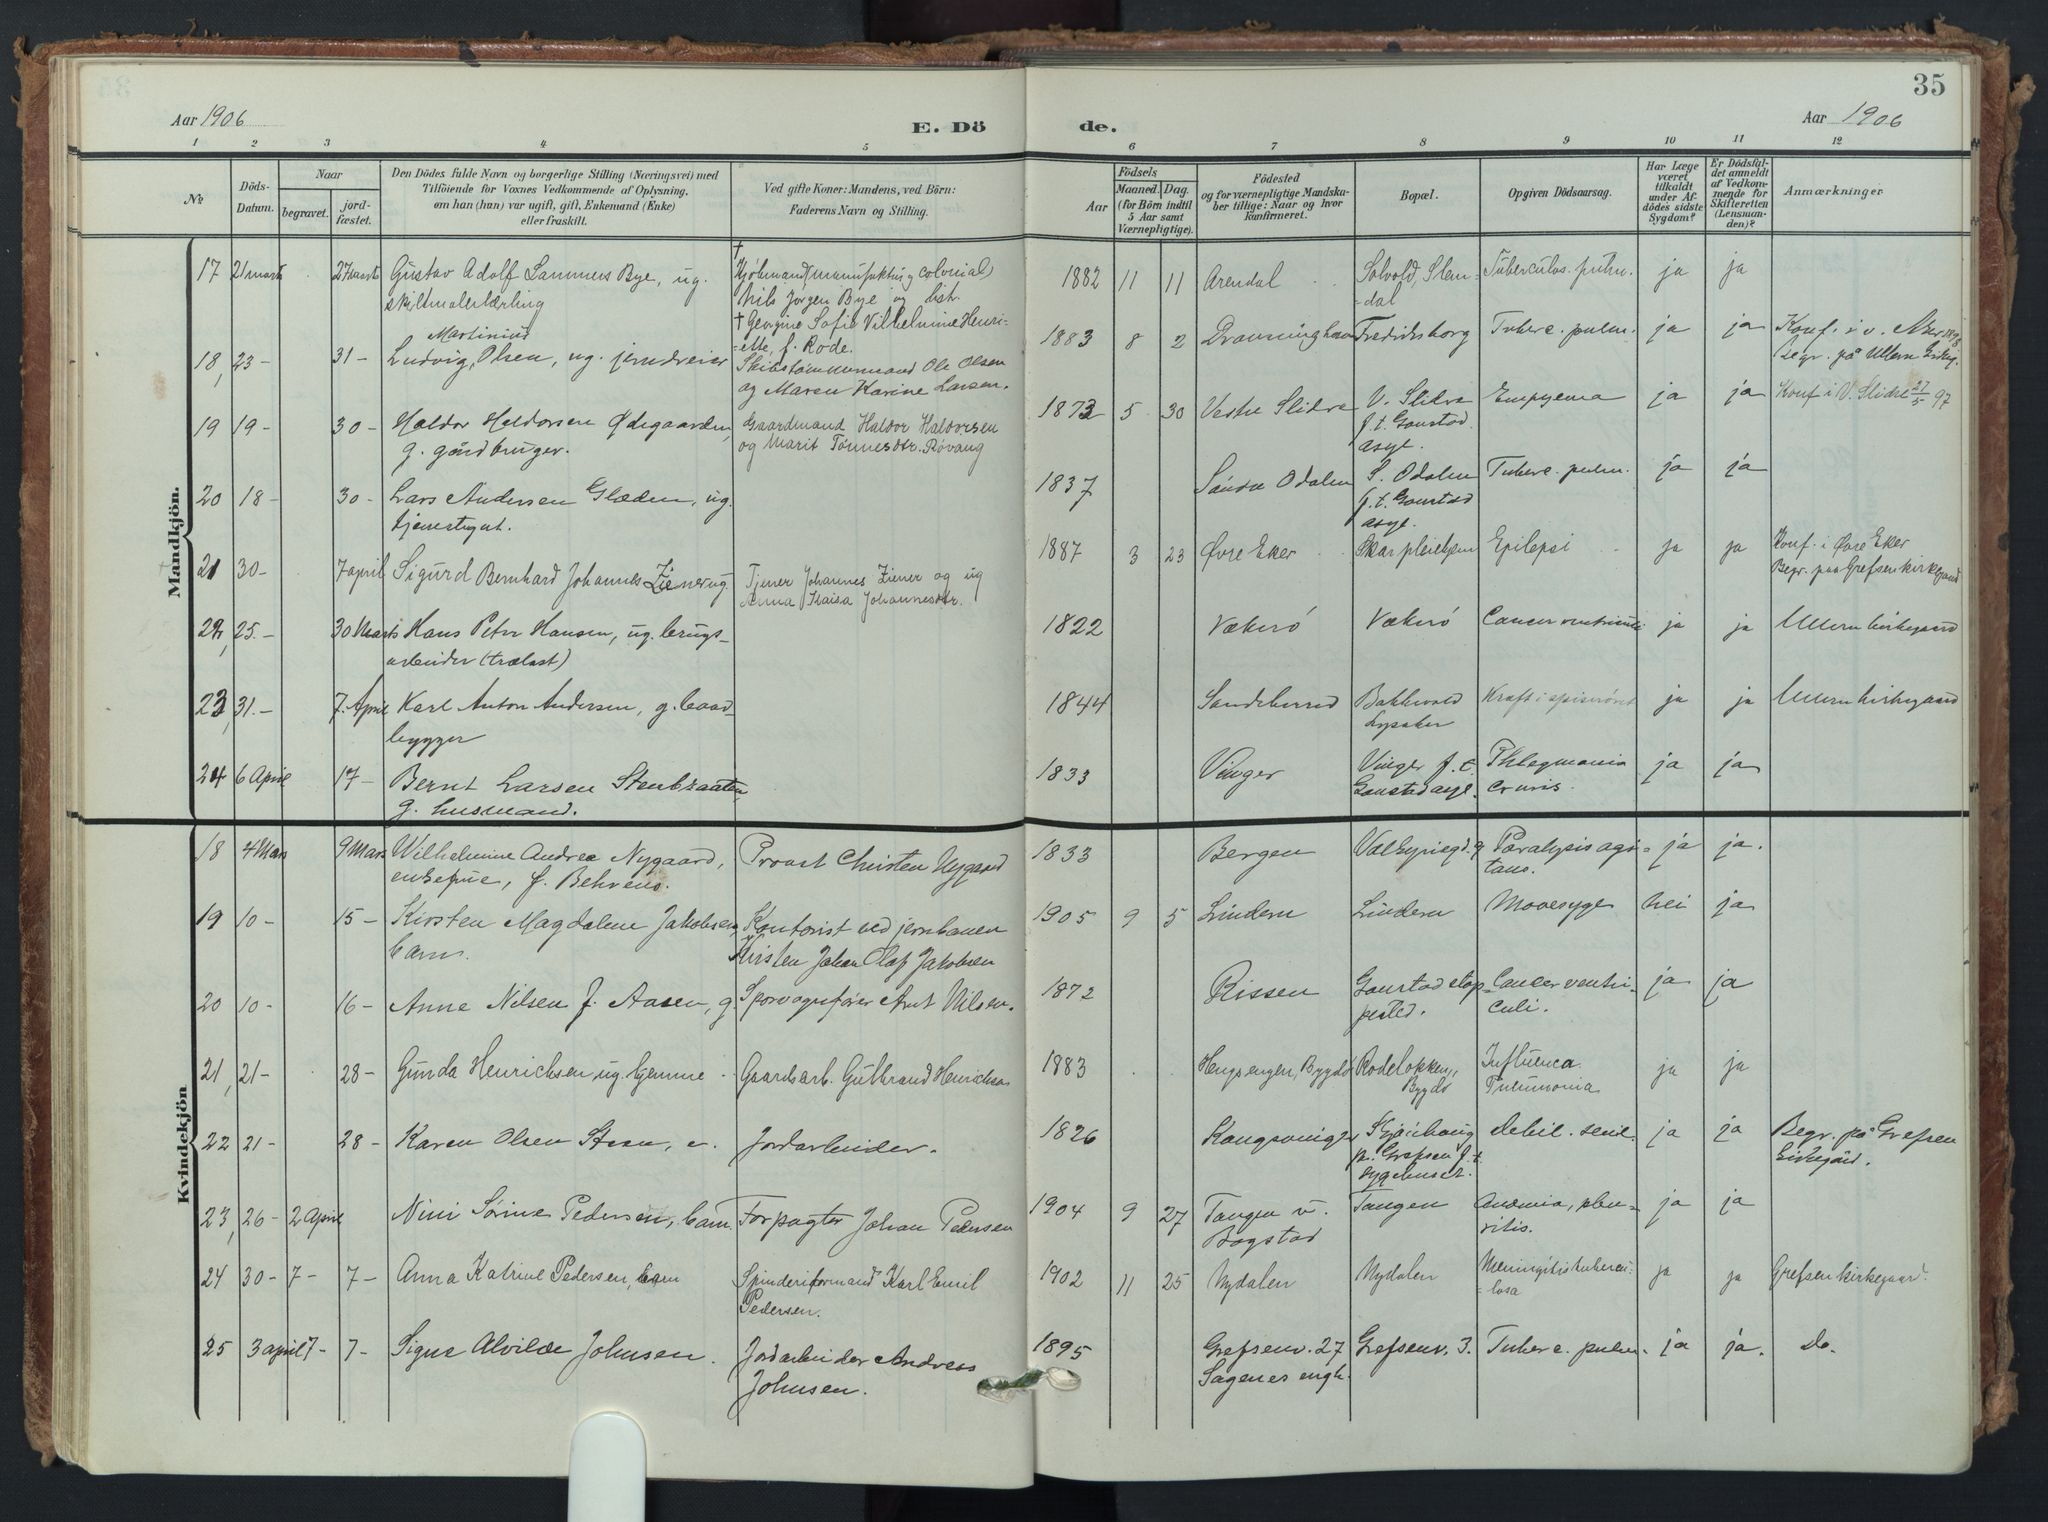 35
Aar 1906
E. Dö de.
Aar 1906
1 2 3 4 5 6 7 8 9 10 11 12
№
Döds-Datum.
Naar
begravet.
jord-fæstet.
Den Dödes fulde Navn og borgerlige Stilling (Næringsvei) med
Tilföiende for Voxnes Vedkommende af Oplysning,
om han (hun) var ugift, gift, Enkemand (Enke)
eller fraskilt.
Ved gifte Koner: Mandens, ved Börn:
Faderens Navn og Stilling.
Födsels
Aar
Maaned. Dag.
(for Börn indtil
5 Aar samt
Værnepligtige).
Födested
og for værnepligtige Mandska-
ber tillige: Naar og hvor
konfirmeret.
Bopæl.
Opgiven Dödsaarsag.
Har Læge
været
tilkaldt
under Af-
dödes sidste
Sygdom?
Er Dödsfal-
det anmeldt
af Vedkom-
mende for
Skifteretten
(Lensman-
den)?
Anmærkninger
Mandkjön.
17 21 marts 27 marts Gustav Adolf Sammers Bye, ug.
skiltmalerlærling
† Kjøbmand (manufaktur og colonial)
Nils Jørgen Bye og hstr.
† Georgine Sofie Vilhelmine Henri-
ette, f. Rode.
1882 11 11 Arendal Solvold, Slem-
dal Tuberculos. pulm. ja ja
18 23- 31- Martinius
Ludvig Olsen, ug. jerndreier
Skibstømmermand Ole Olsen
og Maren Karine Larsen.
1883 8 2 Fredriksborg Tuberc. pulm. ja ja Konf. i v. Aker 1898
Begr. på Ullern kirkeg.
19 19- 30- Haldor Haldorsen Ødegaarden,
g. gårdbruger.
Gaardmand Haldor Haldorsen
og Marit Tønnesdtr. Røvang
1873 5 30 Vestre Slidre V. Slidre
f. t. Gaustad
asyl. Empyema ja ja Konf i V. Slidre 27/5 97
20 18- 30- Lars Andersen Glæden, ug.
tjenestegut.
1837 Søndre Odalen S. Odalen
f. t. Gaustad
asyl. Tuberc. pulm. ja ja
21 30- 7 april Sigurd Bernhard Johannes Ziener ug.
Tjener Johannes Ziener og ug
Anna Kaisa Johannesdtr.
1887 3 23 Øvre Eker Skar pleiehjem Epilepsi ja ja Konf. i Øvre Eker
Begr. paa Grefsen kirkegaard
22, 25.- 30 Marts Hans Peter Hansen, ug. brugs-
arbeider (trælast)
1822 Vækerö Vækerö Cancer ventriculi ja ja Ullern kirkegaard
23, 31.- 7. April Karl Anton Andersen, g. baad-
bygger
1844 Sandeherred Bakkevold
Lysaker Kræft i spiserøret ja ja Ullern kirkegaard
24 6 April 17- Bernt Larsen Stenbraaten,
g. husmand.
1833 Vinger Vinger f. t.
Gaustad asyl. Phlegmonia
cruris. ja ja
Kvindekjön
18 4 Mars 9 Mars Wilhelmine Andrea Nygaard,
enkefrue, f. Behrens.
Provst Christen Nygaard
1833 Bergen Valkyriegd. 9 Paralysis agi-
tans. ja ja.
19 10- 15- Kirsten Magdalene Jakobsen,
barn.
Kontorist ved jernbanen
Kirsten Johan Olaf Jakobsen
1905 9 5 Lindern Lindern Mavesyge nei ja
20 10- 16- Anne Nilsen f. Aasen, g.
Sporvognfører Arnt Nilsen.
1872 Rissen Gaustad stop-
pested. Cancer ventri-
culi. ja ja
21, 21- 28- Gunda Henrichsen ug. hjemme
Gaardsarb. Gulbrand Henrichsen
1883 Hengsengen, Bygdö Rodeløkken,
Bygdö Influenca
Pneumonia ja ja
22 21- 28- Karen Olsen Steen, e.
Jordarbeider.
1826 Kongsvinger
p. Grefsen f. t.
sygehuset. debil. senil. ja ja Begr. på Grefsen
kirkegård.
23, 26- 2 April Nini Sørine Pedersen, barn
Forpagter Johan Pedersen
1904 9 27 Tangen v.
Bogstad Tangen Anæmia, pleu-
ritis. ja ja
24 30- 7- 7- Anna Katrine Pedersen, barn
Spinderiformand Karl Emil
Pedersen.
1902 11 25 Nydalen Nydalen Meningitis tubercu-
losa ja ja Grefsen kirkegaard.
25 3 april 7- 7- Signe Alvilde Johnsen.
Jordarbeider Andreas
Johnsen.
1895 Grefsenv. 27
Sagenes engh. Grefsenv. 3. Tuberc. pulm. ja ja. do.